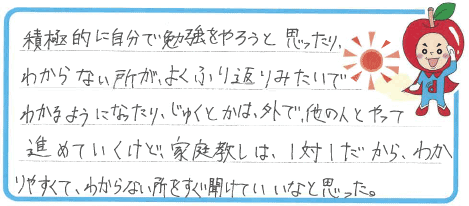 積極的に自分で勉強をやろうと思ったり、
わからない所が、よくふり返りみたいで
わかるようになったり、じゅくとかは、外で、他の人とやって
進めていくけど、家庭教しは、1対1だから、わか
りやすくて、わからない所をすぐ聞けていいなと思った。